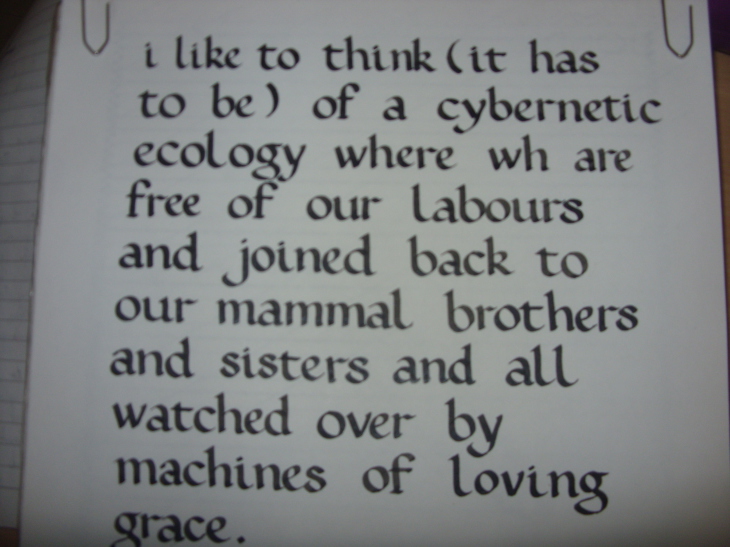 i like to think (it has
to be) of a cybernetic
ecology where wh are
free of our labours
and joined back to
our mammal brothers
and sisters and all
watched over by
machines of loving
grace.